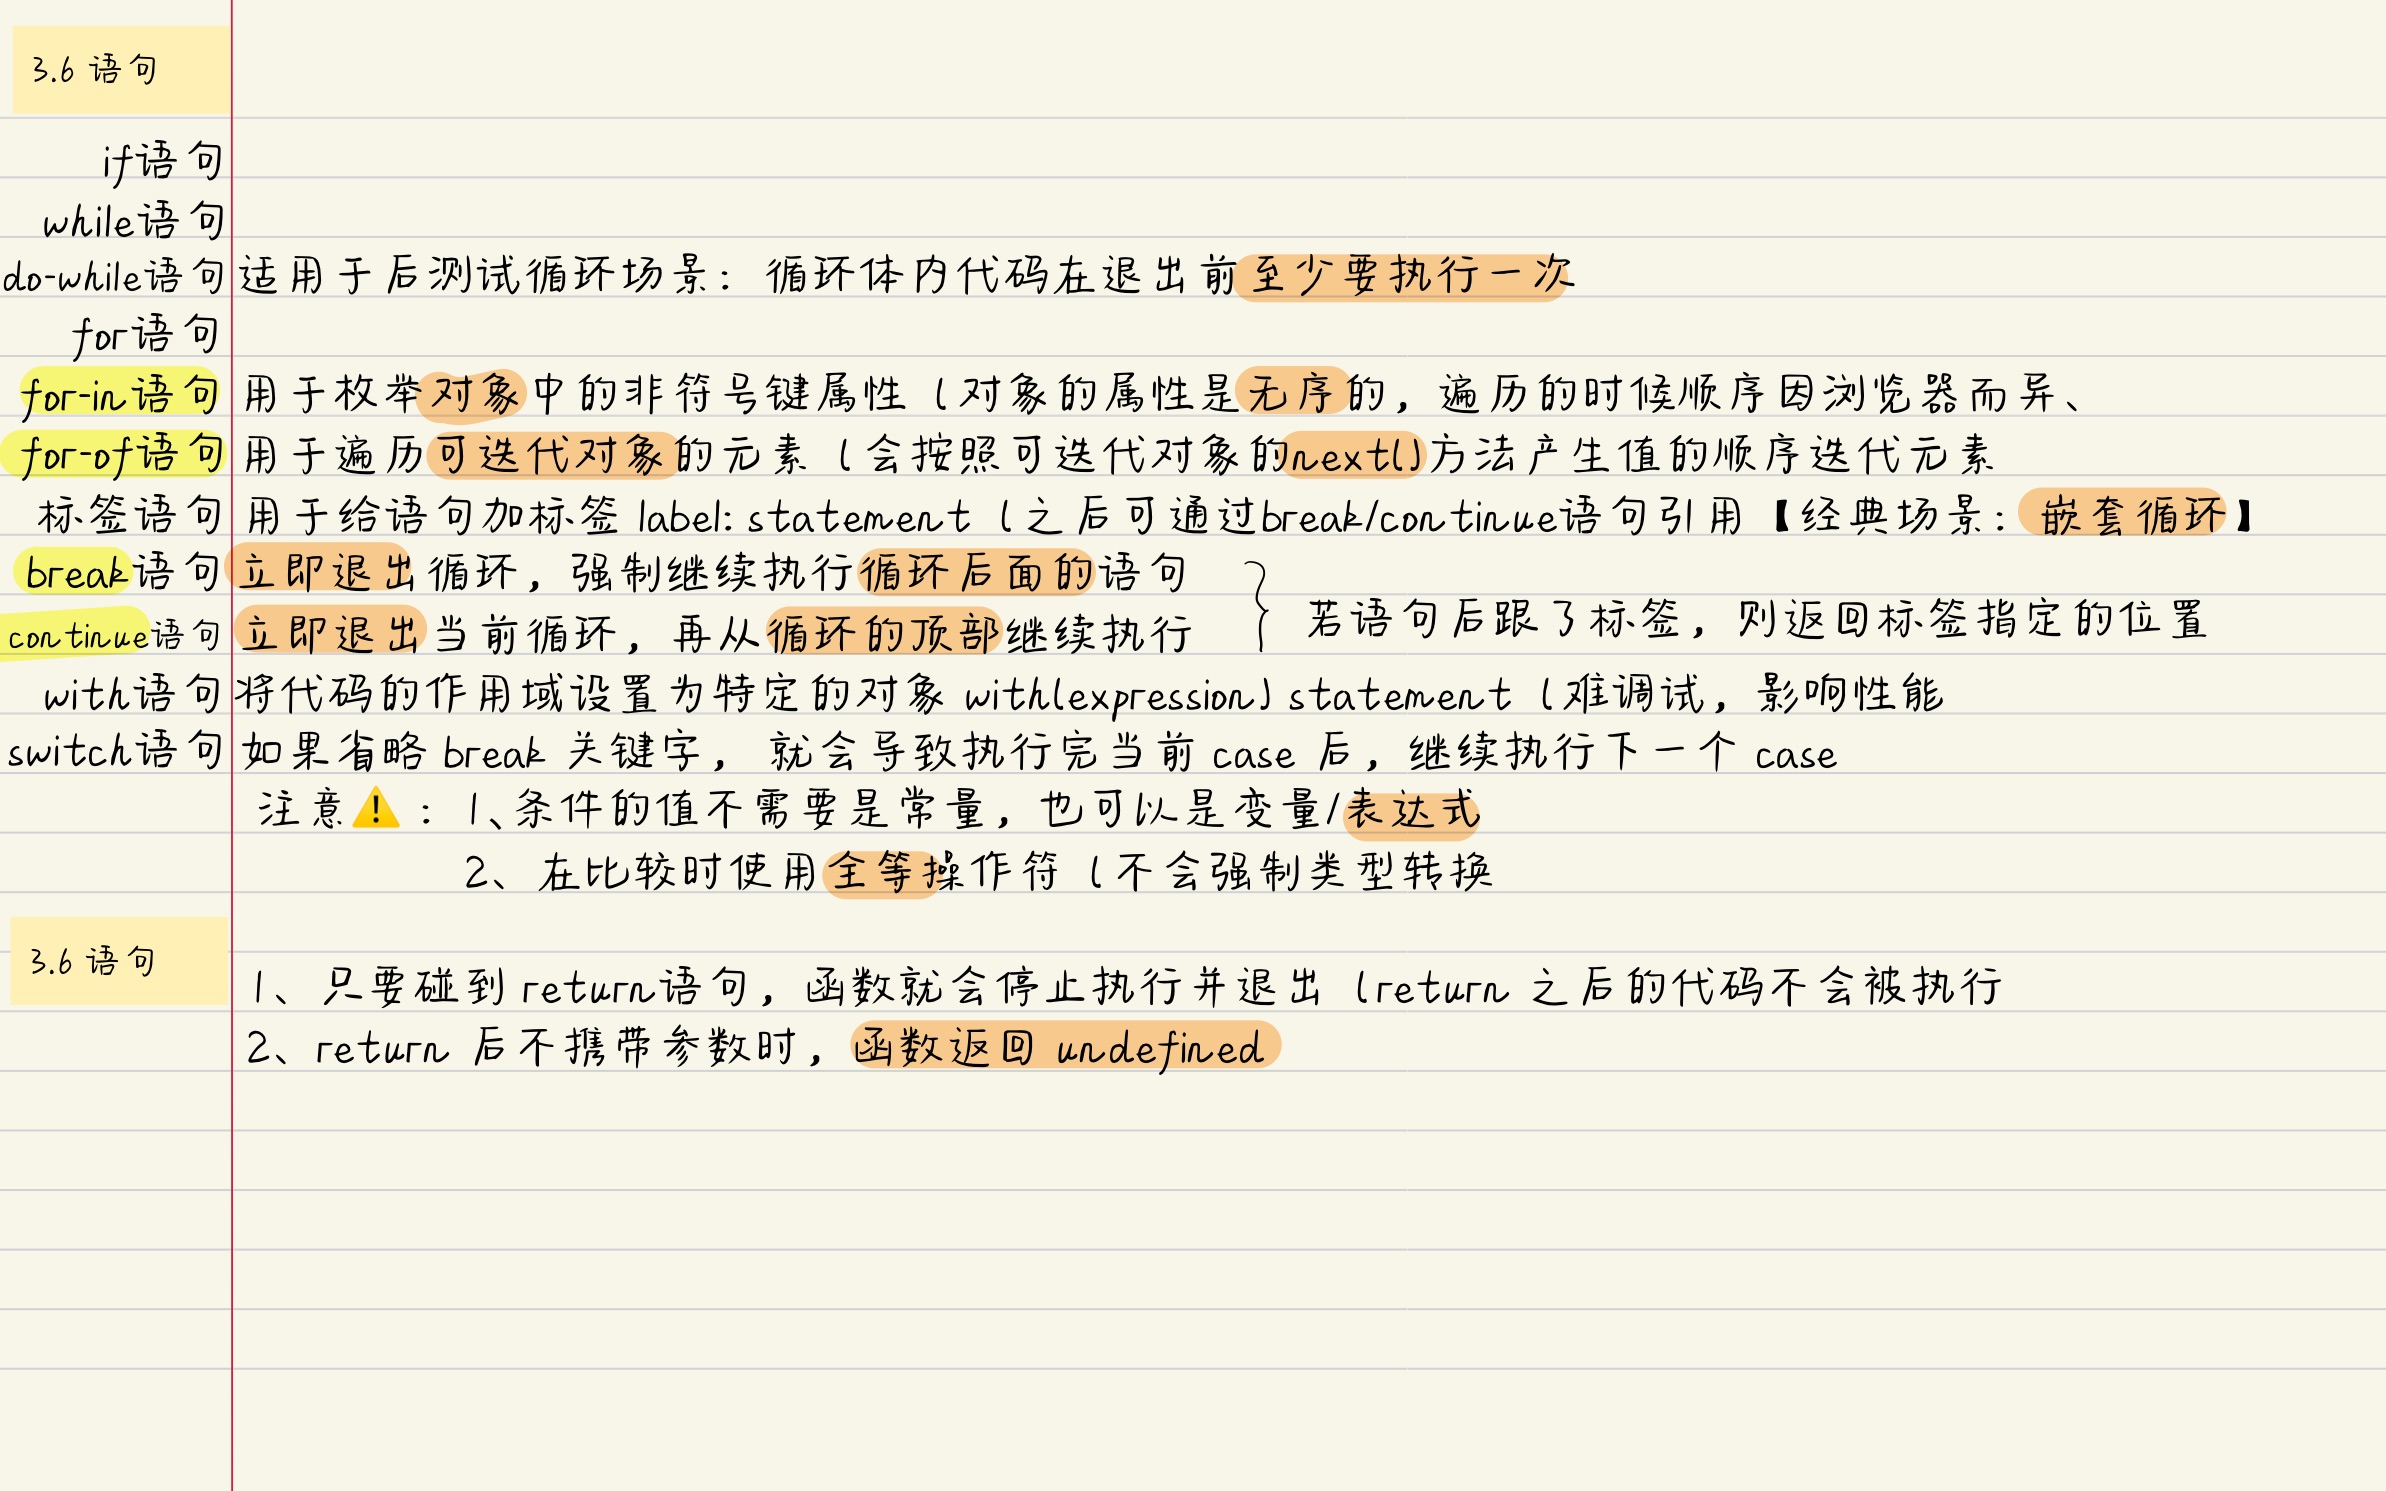 3.6 语句
if语句
while语句
do-while语句 适用于后测试循环场景：循环体内代码在退出前至少要执行一次
for语句
for-in语句 用于枚举对象中的非符号键属性（对象的属性是无序的，遍历的时候顺序因浏览器而异、
for-of语句 用于遍历可迭代对象的元素（会按照可迭代对象的next()方法产生值的顺序迭代元素
标签语句 用于给语句加标签 label: statement（之后可通过break/continue语句引用【经典场景：嵌套循环】
break语句 立即退出循环，强制继续执行循环后面的语句
continue语句 立即退出当前循环，再从循环的顶部继续执行 } 若语句后跟了标签，则返回标签指定的位置
with语句 将代码的作用域设置为特定的对象 with(expression) statement（难调试，影响性能
switch语句 如果省略 break 关键字，就会导致执行完当前 case 后，继续执行下一个 case
注意⚠️：1、条件的值不需要是常量，也可以是变量/表达式
2、在比较时使用全等操作符（不会强制类型转换
3.6 语句
1、只要碰到 return语句，函数就会停止执行并退出（return 之后的代码不会被执行
2、return 后不携带参数时，函数返回 undefined